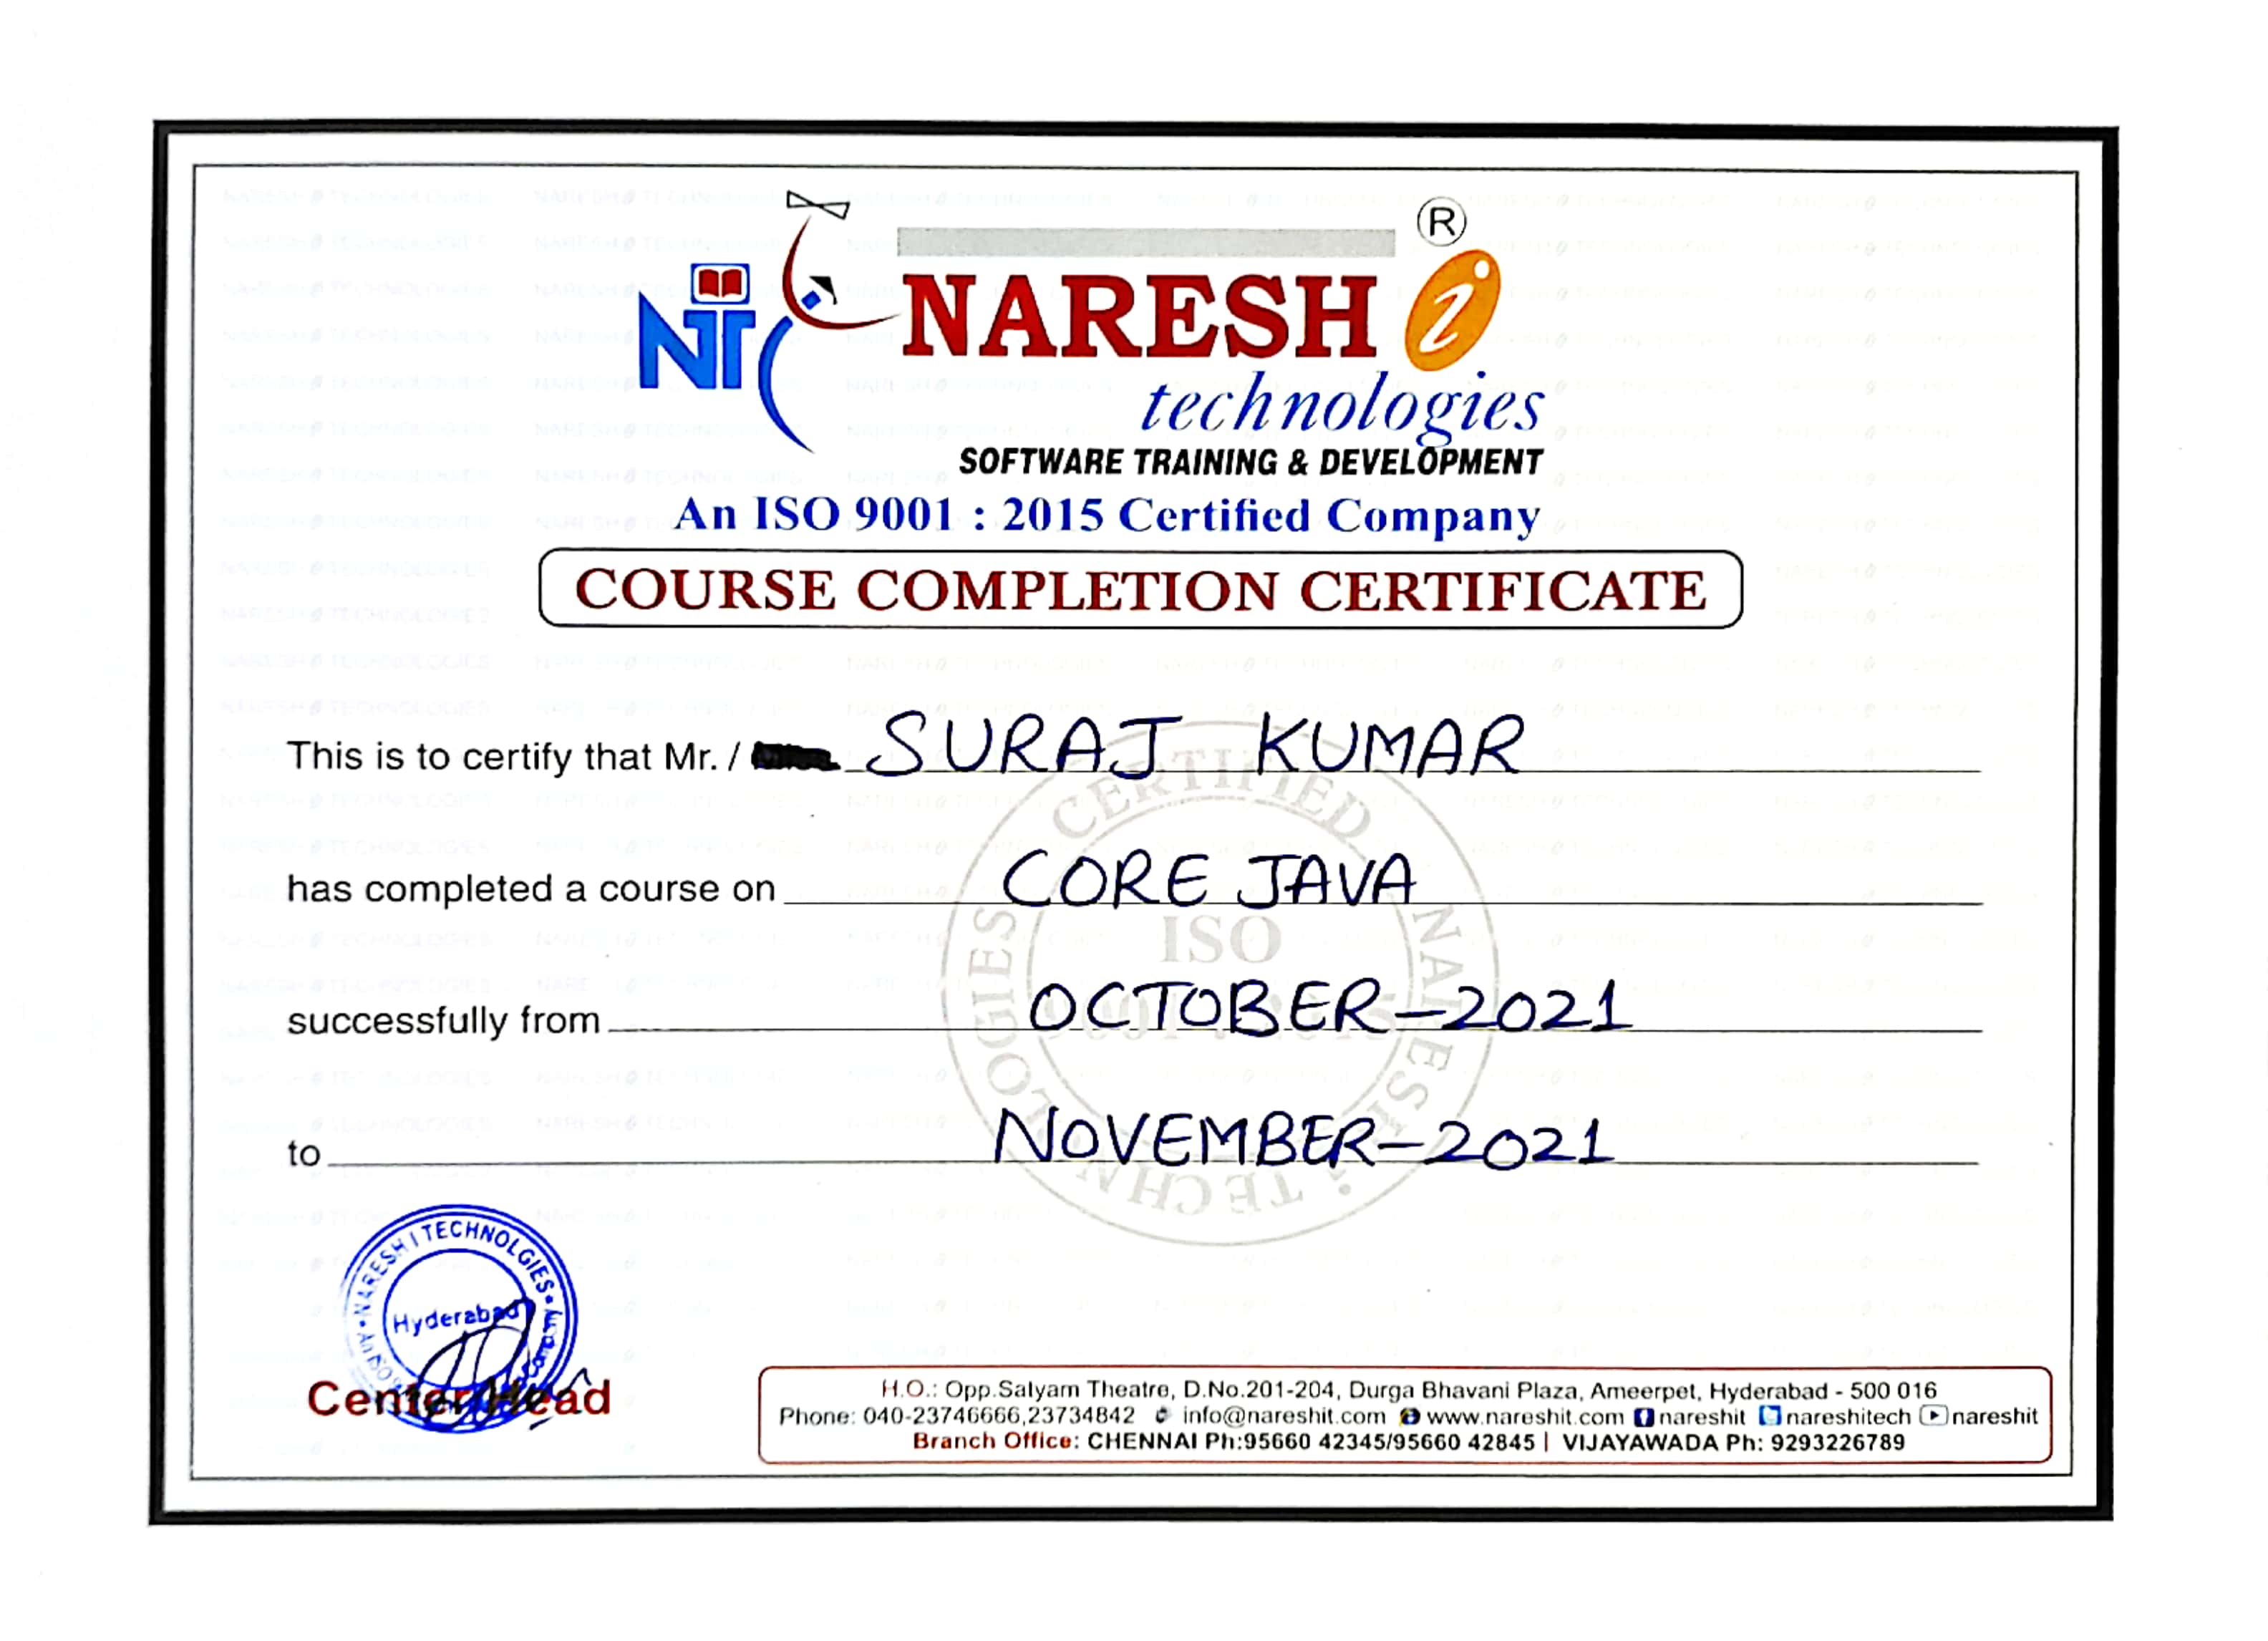 ®
NT
NARESH i
technologies
SOFTWARE TRAINING & DEVELOPMENT
An ISO 9001 : 2015 Certified Company
COURSE COMPLETION CERTIFICATE
This is to certify that Mr. / SURAJ KUMAR
has completed a course on CORE JAVA
successfully from OCTOBER-2021
to NOVEMBER-2021
CERTIFIED NARESH TECHNOLOGIES
ISO
9001 : 2015
NARESH I TECHNOLGIES
Hyderabad
Center Head
H.O.: Opp.Satyam Theatre, D.No.201-204, Durga Bhavani Plaza, Ameerpet, Hyderabad - 500 016
Phone: 040-23746666,23734842 info@nareshit.com www.nareshit.com nareshit nareshitech nareshit
Branch Office: CHENNAI Ph:95660 42345/95660 42845 | VIJAYAWADA Ph: 9293226789